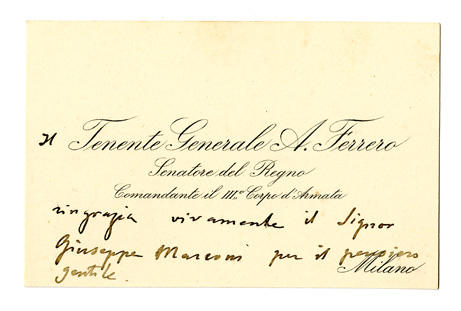 Il Tenente Generale A. Ferrero
Senatore del Regno
Comandante il IIIº Corpo d'Armata
ringrazia vivamente il Signor
Giuseppe Marconi per il pensiero
Milano
gentile.